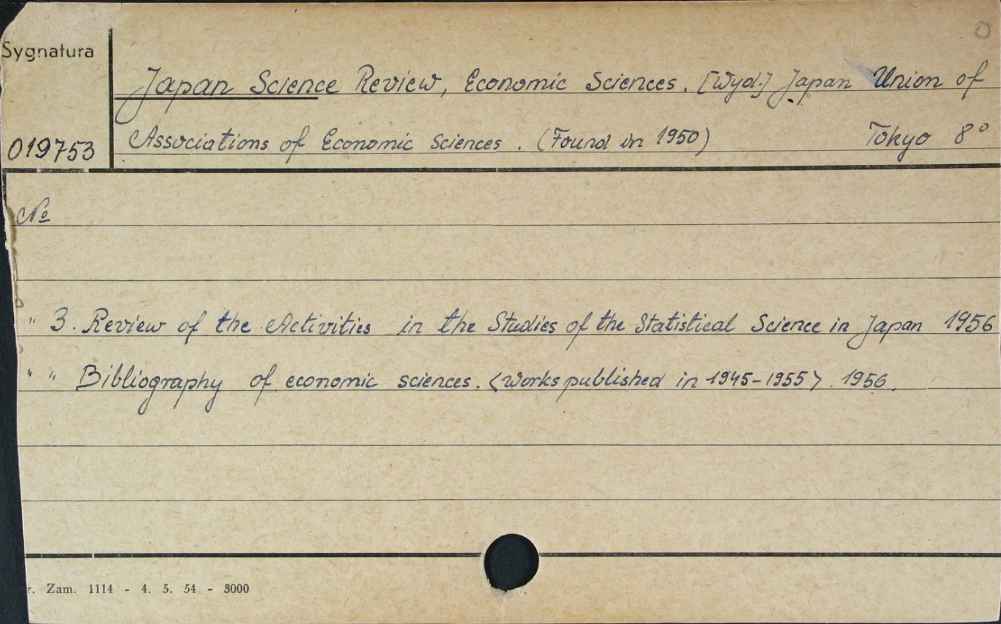 Sygnatura
Japan Science Review, Economic Sciences. [Wyd:] Japan Union of
019753
Associations of Economic Sciences. (Found in 1950) Tokyo 8°
№
" 3. Review of the Activities in the Studies of the Statistical Science in Japan 1956
" " Bibliography of economic sciences. <Works published in 1945-1955>. 1956.
r. Zam. 1114 - 4. 5. 54 - 3000